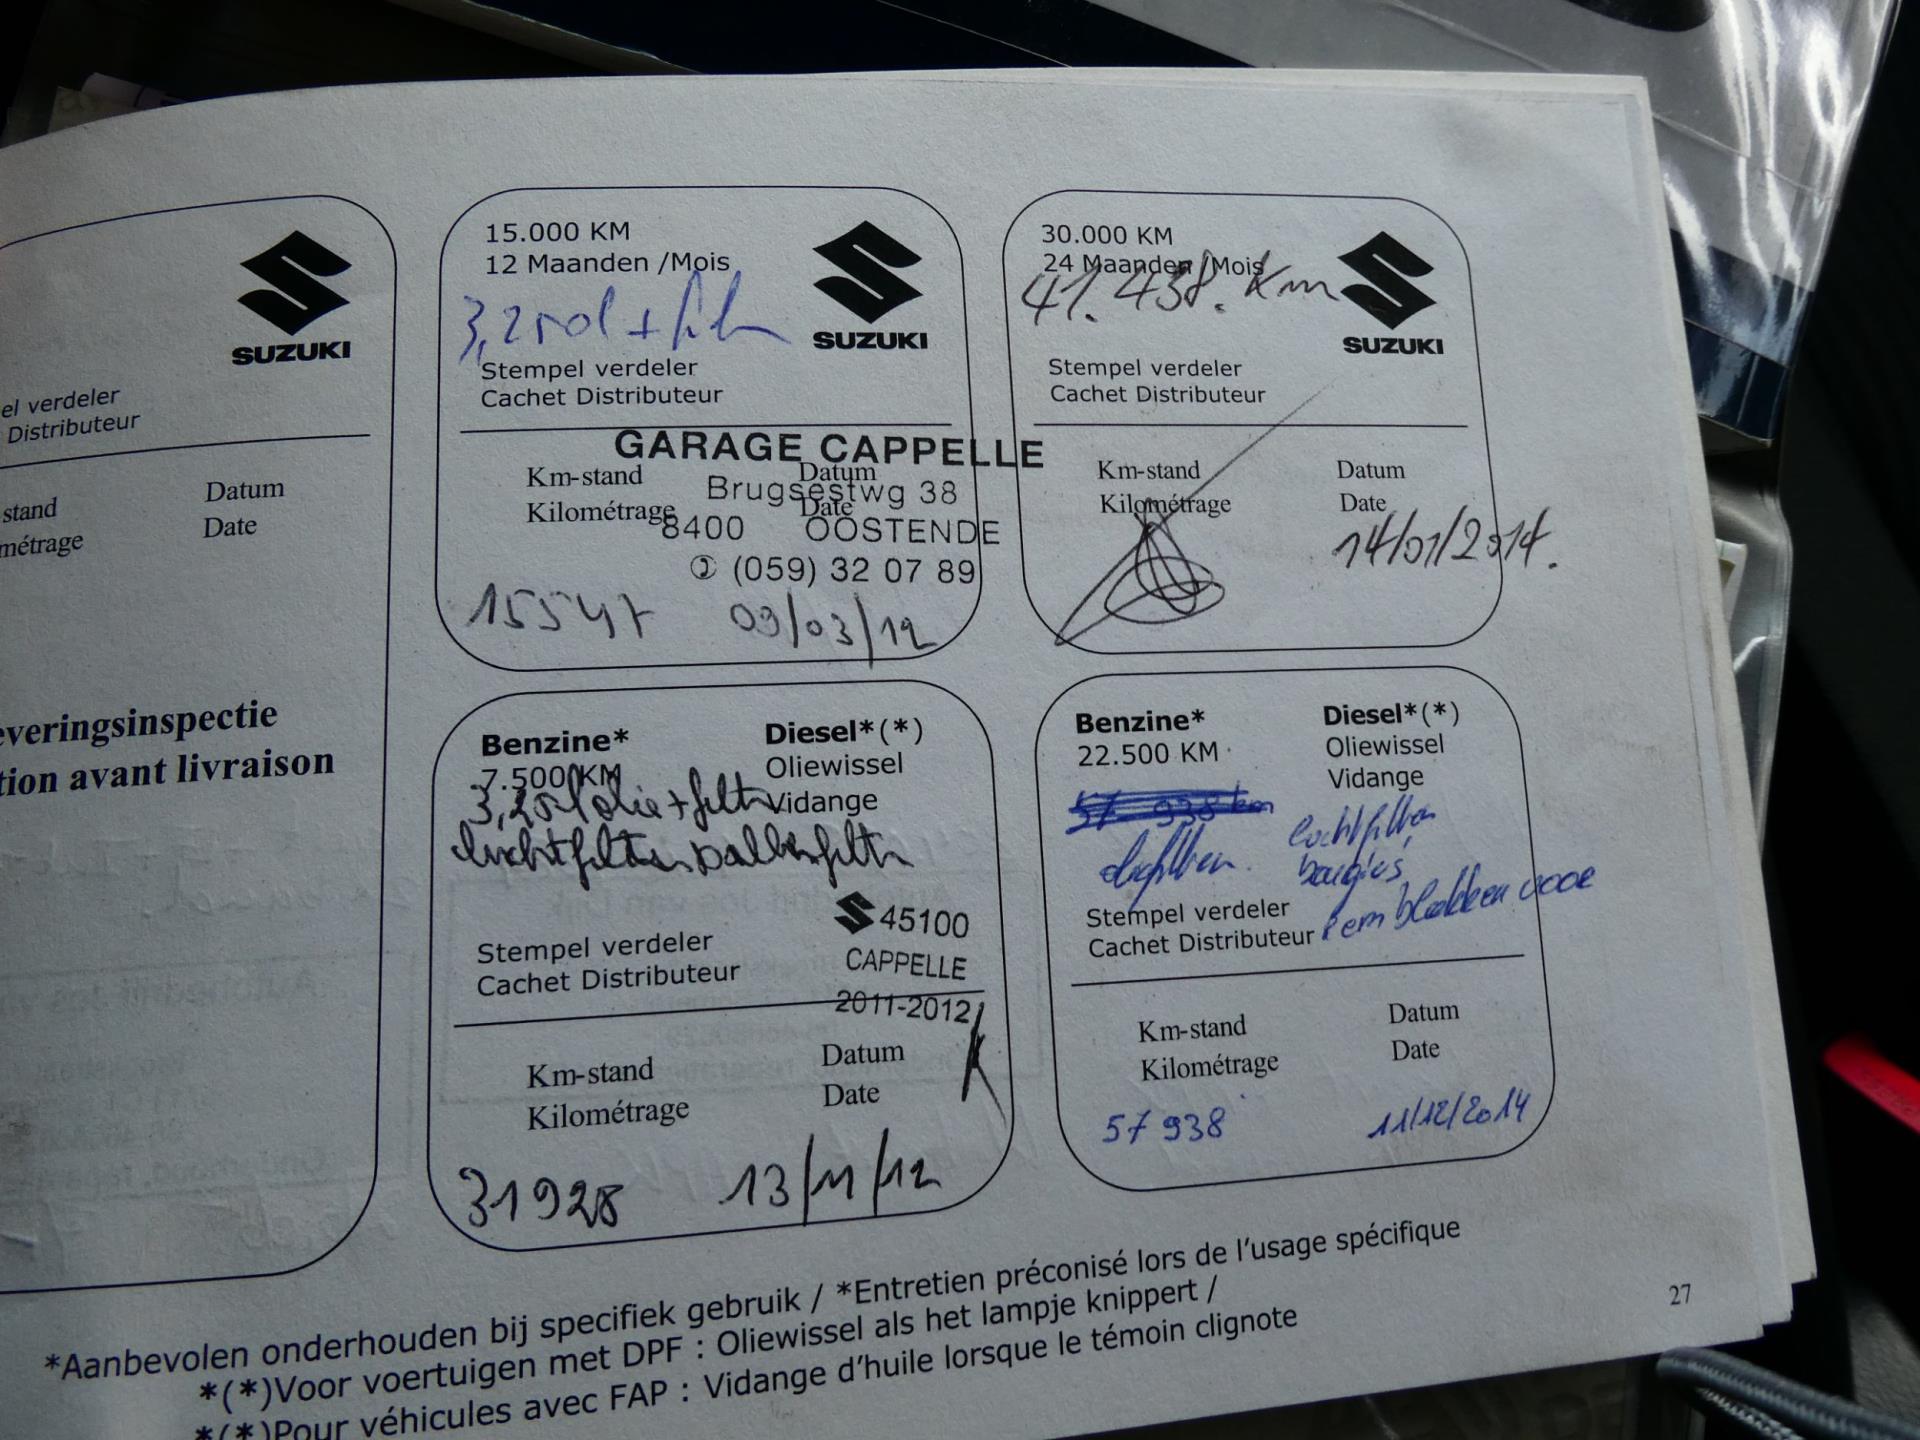 SUZUKI
el verdeler
Distributeur
stand
métrage
Datum
Date
everingsinspectie
tion avant livraison
15.000 KM
12 Maanden /Mois
SUZUKI
Stempel verdeler
Cachet Distributeur
GARAGE CAPPELLE
Km-stand
Datum
Brugsestwg 38
Kilométrage
Date
8400 OOSTENDE
(059) 32 07 89
15547 09/03/12
30.000 KM
24 Maanden /Mois
41.438. Km
SUZUKI
Stempel verdeler
Cachet Distributeur
Km-stand
Datum
Kilométrage
Date
14/01/2014.
Benzine*
Diesel*(*)
7.500 KM
Oliewissel
Vidange
3,25l olie + filter
luchtfilter
45100
CAPPELLE
2011-2012
Stempel verdeler
Cachet Distributeur
Km-stand
Datum
Kilométrage
Date
31928 13/11/12
Benzine*
Diesel*(*)
22.500 KM
Oliewissel
Vidange
57 938 km
luchtfilter
bougies,
remblokken voor
Stempel verdeler
Cachet Distributeur
Km-stand
Datum
Kilométrage
Date
57 938 11/12/2014
*Aanbevolen onderhouden bij specifiek gebruik / *Entretien préconisé lors de l'usage spécifique
*(*)Voor voertuigen met DPF : Oliewissel als het lampje knippert /
*(*)Pour véhicules avec FAP : Vidange d'huile lorsque le témoin clignote
27